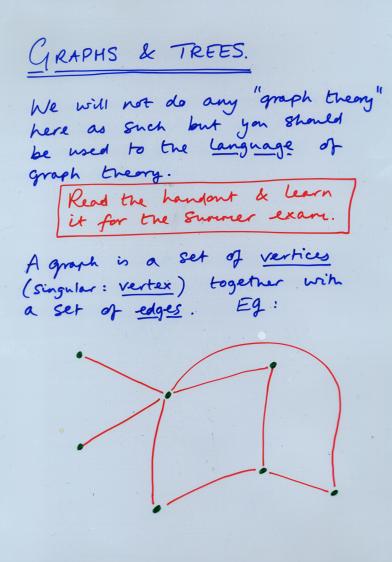 GRAPHS & TREES.
We will not do any "graph theory"
here as such but you should
be used to the language of
graph theory.
Read the handout & learn
it for the summer exam.
A graph is a set of vertices
(singular: vertex) together with
a set of edges. Eg: